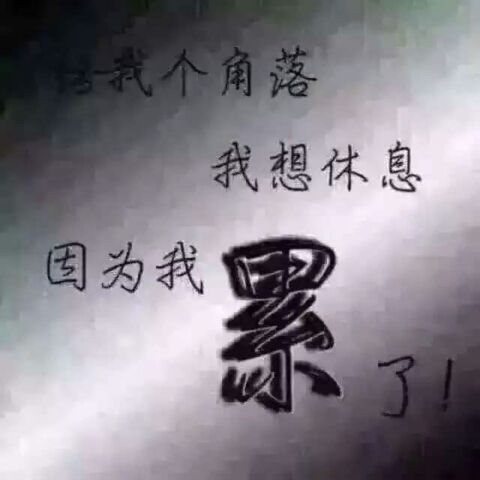 给我个角落
我想休息
因为我累了!